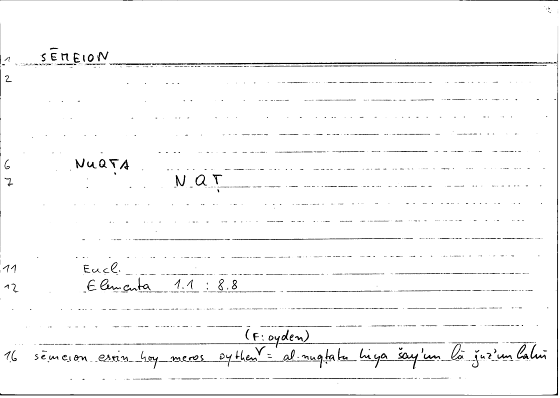 1 SĒMEION
2
6 NUQṬA
7 NQṬ
11 Eucl.
12 Elementa 1.1 : 8.8
(F: oyden)
16 sēmeion estin hoy meros oythen = al-nuqṭatu hiya šay'un lā ǧuz'un lahū